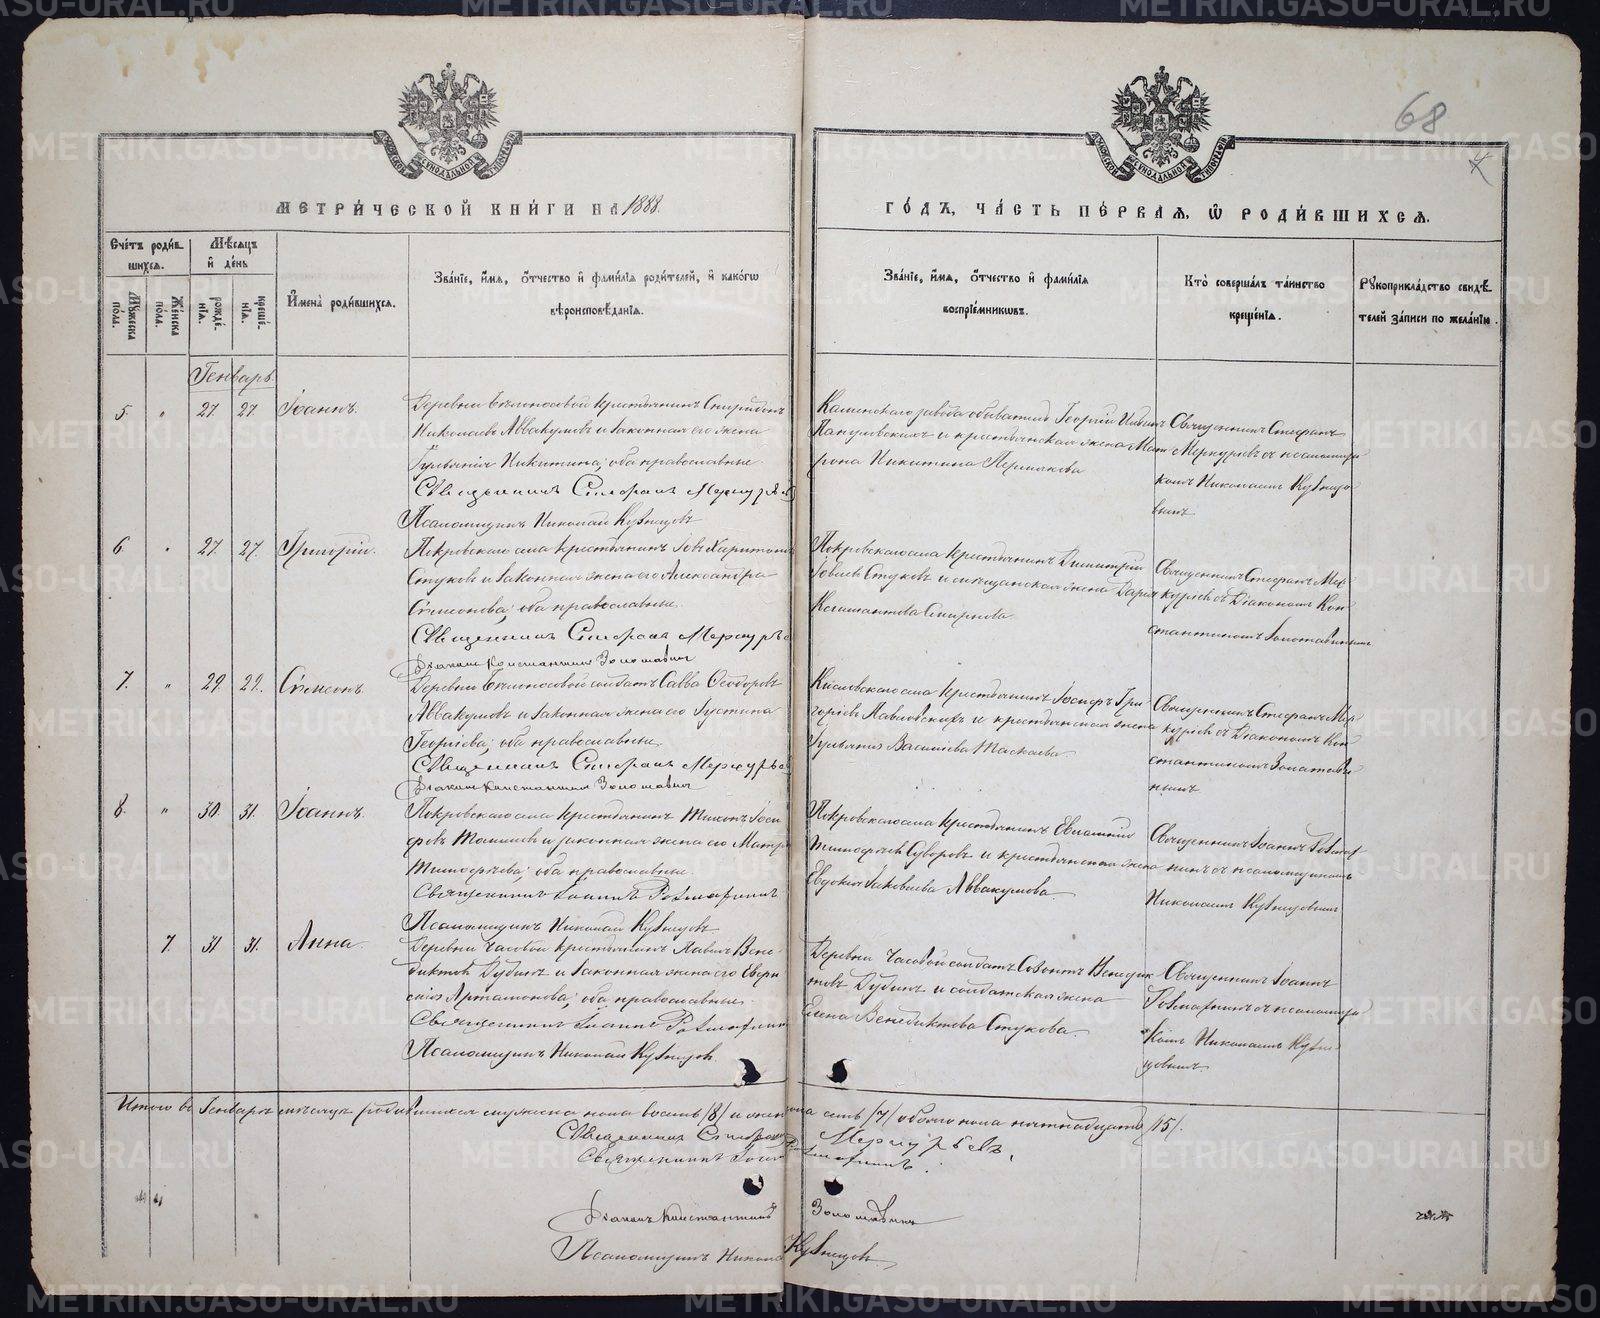 68
4
МЕТРИ́ЧЕСКОЙ КНИ́ГИ НА 1888.
ГО́ДЪ, ЧА́СТЬ ПЕ́РВАЯ, Ѡ РОДИ́ВШИХСЯ.
Сче́тъ роди́в-
шихся.
Мꙋ́жеска по́ла.
Же́нска по́ла.
Мѣ́сяцъ
и҆ де́нь
рожде́-
нїя.
креще́-
нїя.
И҆мена̀ роди́вшихся.
Зва́нїе, и҆́мя, ѻ҆́тчество и҆ фами́лїя роди́телей, и҆ како́гѡ
вѣроисповѣ́данїя.
Зва́нїе, и҆́мя, ѻ҆́тчество и҆ фами́лїя
воспрїе́мникѡвъ.
Кто̀ соверша́лъ та́инство
креще́нїя.
Рꙋкоприкла́дство свидѣ́-
телей за́писи по жела́нїю.
Генварь
5. " 27. 27. Іоаннъ.
Деревни Бѣлоносовой крестьянинъ Спиридонъ
Николаевъ Аввакумовъ и законная его жена
Гульянія Никитина; оба православные.
Священникъ Стефанъ Меркурьевъ
Псаломщикъ Николай Кузнецовъ
Каменскаго завода обыватель Георгій Ильинъ
и крестьянская жена Мат-
рона Никитина Пермякова
Священникъ Стефанъ
Меркурьевъ съ псаломщи-
комъ Николаемъ Кузнецо-
вымъ
6. " 27. 27. Григорій.
Покровскаго села крестьянинъ Іовъ Харитоновъ
Стуковъ и законная жена его Александра
Симеонова; оба православные.
Священникъ Стефанъ Меркурьевъ
Діаконъ Константинъ Золотавинъ
Покровскаго села крестьянинъ Димитрій
Іовлевъ Стуковъ и мещанская жена Дарья
Смирнова.
Священникъ Стефанъ Мер-
курьевъ съ Діакономъ Кон-
стантиномъ Золотавинымъ
7. " 29. 29. Симеонъ.
Деревни Бѣлоносовой солдатъ Савва Ѳеодоровъ
Аввакумовъ и законная жена его Іустина
Георгіева; оба православные.
Священникъ Стефанъ Меркурьевъ
Діаконъ Константинъ Золотавинъ
Кисловскаго села крестьянинъ Іосифъ Гри-
горьевъ Павловскихъ и крестьянская жена
Гульянія Васильева Таскаева.
Священникъ Стефанъ Мер-
курьевъ съ Діакономъ Кон-
стантиномъ Золотави-
нымъ
8. " 30. 31. Іоаннъ.
Покровскаго села крестьянинъ Тихонъ Іоси-
фовъ и законная жена его Матрона
Тимофѣева; оба православные.
Священникъ Іоаннъ
Псаломщикъ Николай Кузнецовъ
Покровскаго села крестьянинъ Евлампій
Тимофѣевъ Суворовъ и крестьянская жена
Евдокія Іаковлева Аввакумова.
Священникъ Іоаннъ
съ псаломщикомъ
Николаемъ Кузнецовымъ
7 31 31. Анна.
Деревни Часовой крестьянинъ Павелъ Вене-
диктовъ Дубинъ и законная жена его
Артамонова; оба православные.
Священникъ Іоаннъ
Псаломщикъ Николай Кузнецовъ.
Деревни Часовой солдатъ Созонтъ Венедик-
товъ Дубинъ и солдатская жена
Елена Венедиктова Стукова.
Священникъ Іоаннъ
съ псаломщи-
комъ Николаемъ Кузне-
цовымъ.
Итого въ Генварѣ мѣсяцѣ родившихся мужеска пола восемь /8/ и женска пола семь /7/ обоего пола пятнадцать /15/.
Священникъ Стефанъ Меркурьевъ.
Священникъ Іоаннъ
Діаконъ Константинъ Золотавинъ
Псаломщикъ Николай Кузнецовъ
METRIKI.GASO-URAL.RU